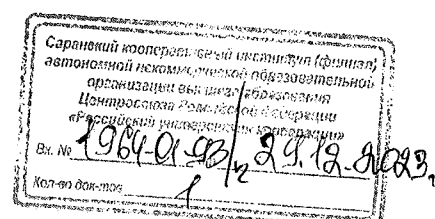 Саранский кооперативный институт (филиал)
автономной некоммерческой образовательной
организации высшего образования
Центросоюза Российской Федерации
«Российский университет кооперации»
Вх. № 29.12.2023
Кол-во док-тов 1